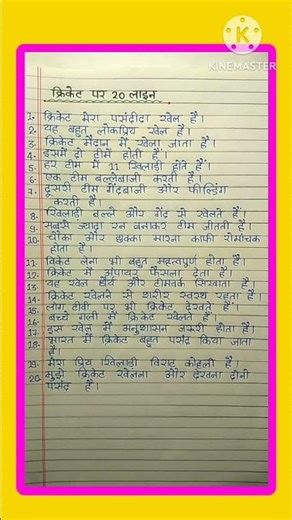 KINEMASTER
क्रिकेट पर 20 लाइन
1. क्रिकेट मेरा पसंदीदा खेल है।
2. यह बहुत लोकप्रिय खेल है।
3. क्रिकेट मैदान में खेला जाता है।
4. इसमें दो टीमें होती हैं।
5. हर टीम में 11 खिलाड़ी होते हैं।
6. एक टीम बल्लेबाजी करती है।
7. दूसरी टीम गेंदबाजी और फील्डिंग
करती है।
8. खिलाड़ी बल्ले और गेंद से खेलते हैं।
9. सबसे ज्यादा रन बनाकर टीम जीतती है।
10. चौका और छक्का मारना काफी रोमांचक
होता है।
11. विकेट लेना भी बहुत महत्वपूर्ण होता है।
12. क्रिकेट में अंपायर फैसला देता है।
13. यह खेल धैर्य और टीमवर्क सिखाता है।
14. क्रिकेट खेलने से शरीर स्वस्थ रहता है।
15. लोग टीवी पर भी क्रिकेट देखते हैं।
16. बच्चे गली में क्रिकेट खेलते हैं।
17. इस खेल में अनुशासन जरूरी होता है।
18. भारत में क्रिकेट बहुत पसंद किया जाता
है।
19. मेरा प्रिय खिलाड़ी विराट कोहली है।
20. मुझे क्रिकेट खेलना और देखना दोनों
पसंद है।